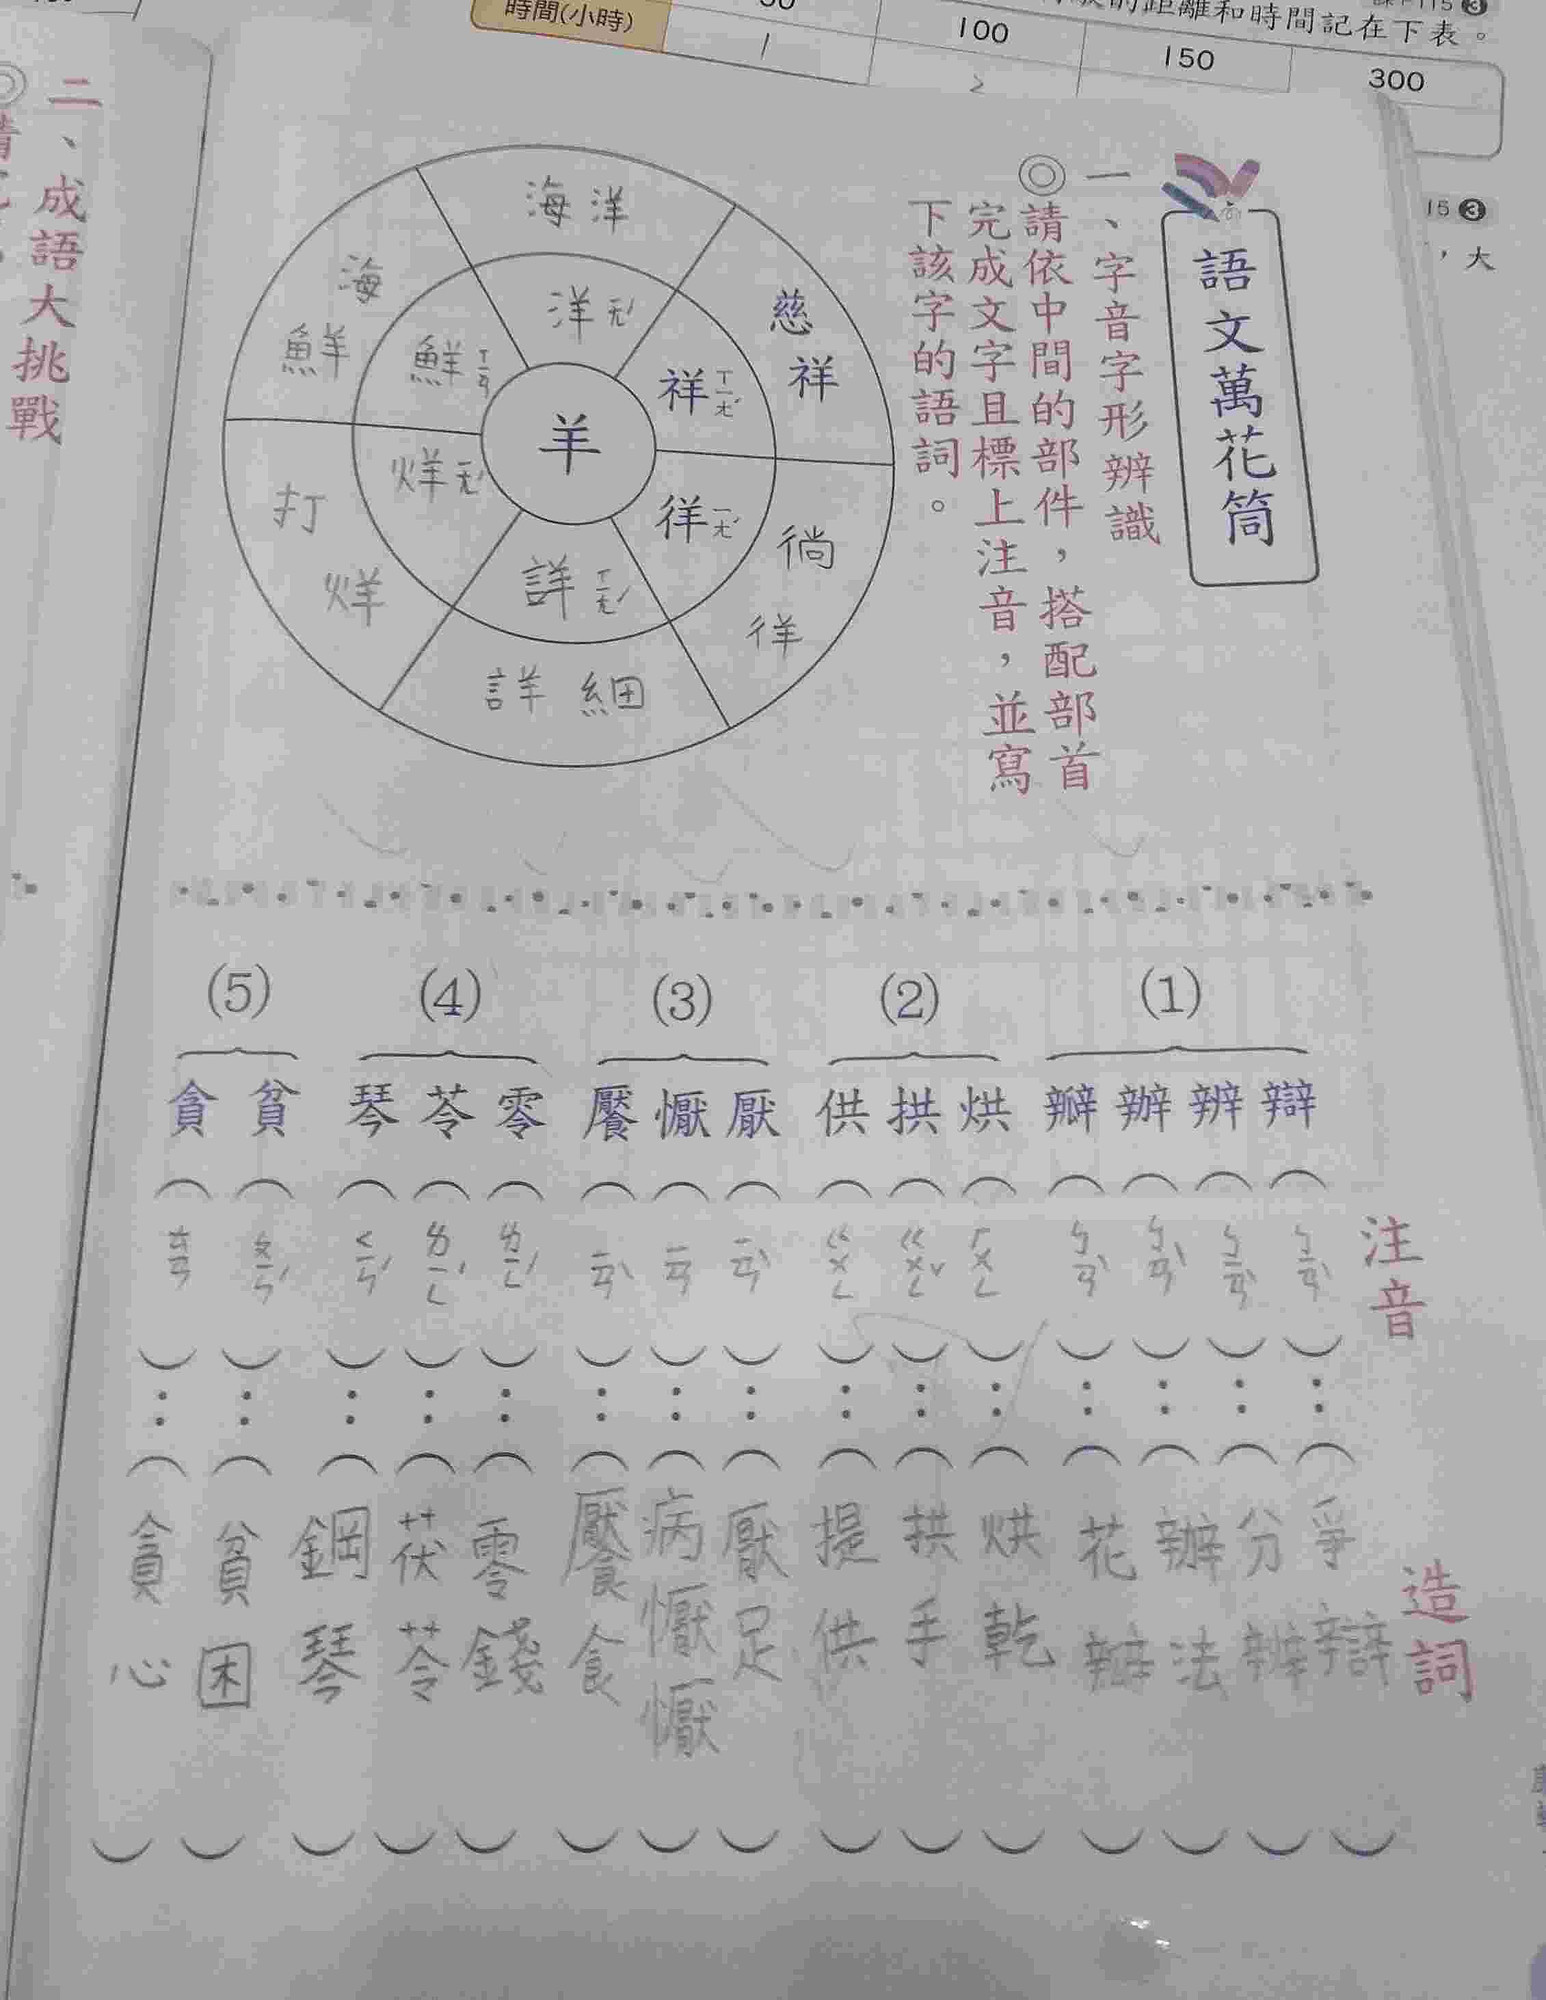 時間(小時)
1
100
2
150
300
距離和時間記在下表。
15 3
，大
語文萬花筒
一、字音字形辨識
◎請依中間的部件，搭配部首
完成文字且標上注音，並寫
下該字的語詞。
羊
祥ㄒㄧㄤˊ
慈祥
徉ㄧㄤˊ
徜徉
詳ㄒㄧㄤˊ
詳細
烊ㄧㄤˊ
打烊
鮮ㄒㄧㄢ
海鮮
洋ㄧㄤˊ
海洋
注音
造詞
(1)
辯(ㄅㄧㄢˋ)：(爭辯)
辨(ㄅㄧㄢˋ)：(分辨)
辦(ㄅㄢˋ)：(辦法)
瓣(ㄅㄢˋ)：(花瓣)
(2)
烘(ㄏㄨㄥ)：(烘乾)
拱(ㄍㄨㄥˇ)：(拱手)
供(ㄍㄨㄥ)：(提供)
(3)
厭(ㄧㄢˋ)：(厭足)
懨(ㄧㄢ)：(病懨懨)
饜(ㄧㄢˋ)：(饜食)
(4)
零(ㄌㄧㄥˊ)：(零錢)
苓(ㄌㄧㄥˊ)：(茯苓)
琴(ㄑㄧㄣˊ)：(鋼琴)
(5)
貧(ㄆㄧㄣˊ)：(貧困)
貪(ㄊㄢ)：(貪心)
二、成語大挑戰